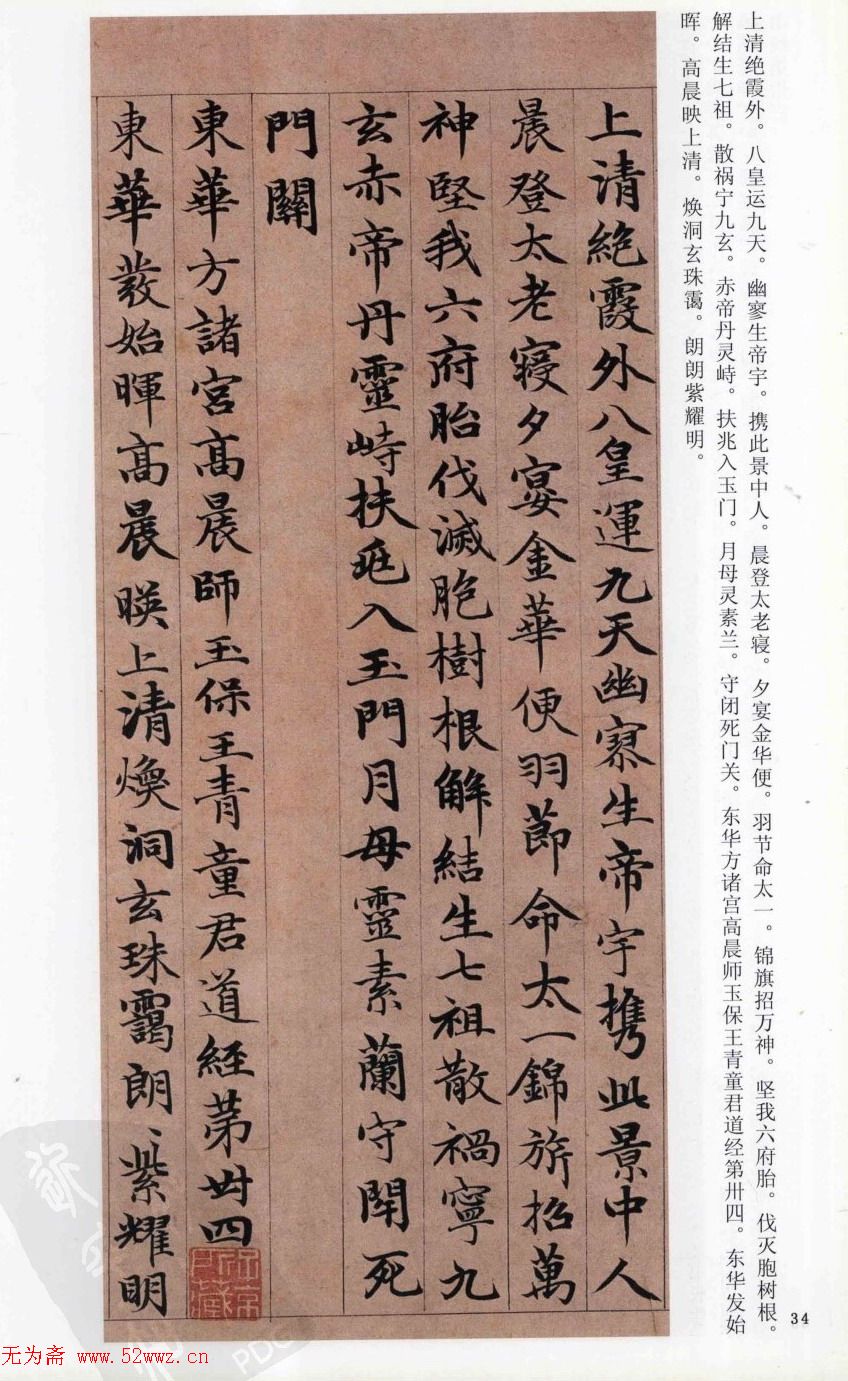 上清绝霞外。八皇运九天。幽寥生帝宇。携此景中人。晨登太老寝。夕宴金华便。羽节命太一。锦旗招万神。坚我六府胎。伐灭胞树根。
解结生七祖。散祸宁九玄。赤帝丹灵峙。扶兆入玉门。月母灵素兰。守闭死门关。东华方诸宫高晨师玉保王青童君道经第卅四。东华发始
晖。高晨映上清。焕洞玄珠霭。朗朗紫耀明。
上清絶霞外八皇運九天幽寥生帝宇携此景中人
晨登太老寝夕宴金華便羽節命太一錦旂招萬
神堅我六府胎伐滅胞樹根解結生七祖散禍寧九
玄赤帝丹靈峙扶兆入玉門月母靈素蘭守閇死
門關
東華方諸宮高晨師玉保王青童君道經第卅四
東華發始暉高晨暎上清煥洞玄珠靄朗〻紫耀明
34
无为斋 www.52wwz.cn
PDG